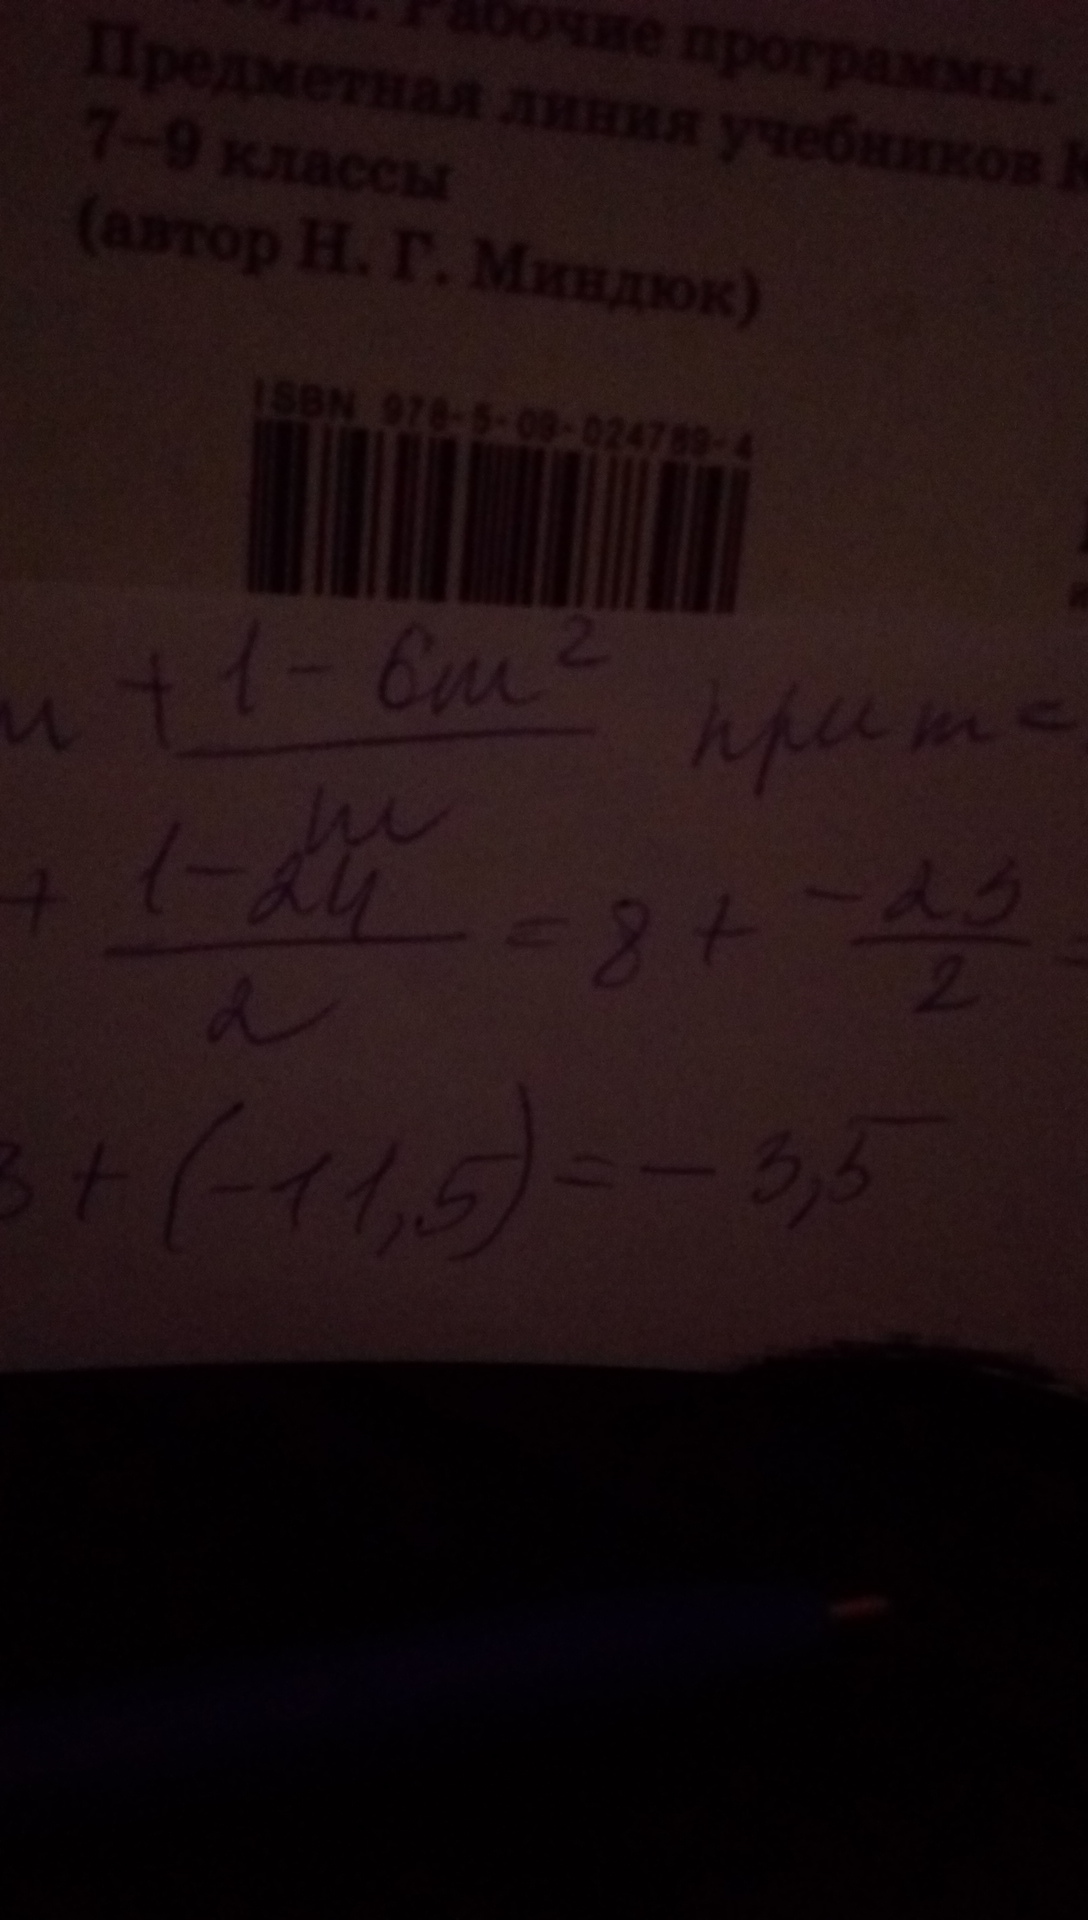 Рабочие программы.
Предметная линия учебников
7–9 классы
(автор Н. Г. Миндюк)
ISBN 978-5-09-024789-4
m + (1 - 6m²)/m при m =
+ (1 - 24)/2 = 8 + (-23)/2 =
+ (-11,5) = - 3,5